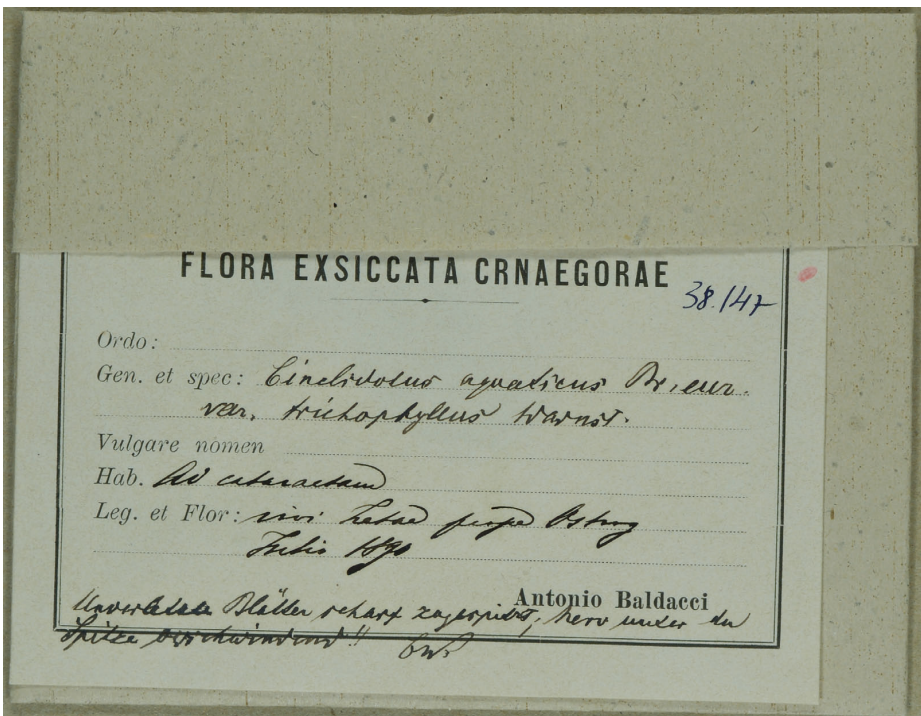 FLORA EXSICCATA CRNAEGORAE
38.147
Ordo:
Gen. et spec: Cinclidotus aquaticus Br. eur.
var. trichophyllus Warnst.
Vulgare nomen
Hab. Ad cataractam
Leg. et Flor: rivi Zetae prope Ostrog
Julio 1890
Antonio Baldacci
Unverletzte Blätter scharf zugespitzt, Nerv unter der
Spitze verschwindend!!